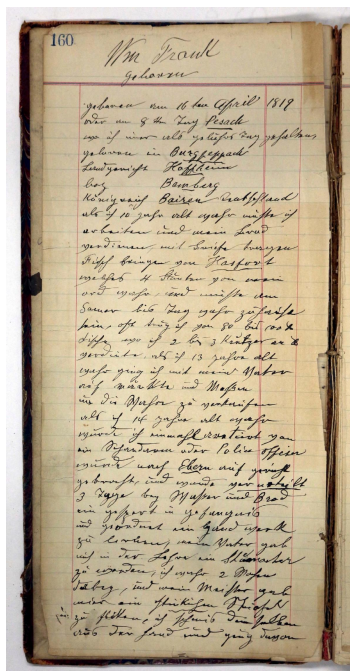 160
Wm Frank
geboren
geboren am 16ten April 1819
oder am 8te Tag Pesach
wo ich mer als gebuhrs Tag gehalten,
geboren in Burgpeppach
Landgericht Hoffheim
bey Bamberg
Königreich Bairen Deutschland
als ich 10 Jahr alt wahr mußte ich
arbeiten und mein Brod
verdienen mit Briefe tragen
Fisch bringe von Hasfort
welches 4 Stunten von mein
ord wahr, und mußte am
bis Tag wahr zuhause
sein, oft trug ich von 80 bis 100 lb
Fische wo ich 2 bis 3 Kreitzer
verdinte, als ich 13 Jahre alt
wahr ging ich mit mein Vater
auf märkte und Meßen
um die Wahre zu verkaufen
als ich 14 Jahre alt wahr
wurde ich einmahl arretirt von
ein Schandarm oder Police officer
wurde nach Ebern auf gericht
gebracht, und wurde verurteilt
3 Tage bey Wasser und Brod
ein gespert in gefangnis
und geordnet ein Hand werk
zu lernen, mein Vater gab
mich in der Lehre ein
zu werden, ich wahr 2 Wochen
dabey, und mein Meister gab
mier ein Stiefel
zu fliken, ich schmis den selben
aus der hand und ging davon